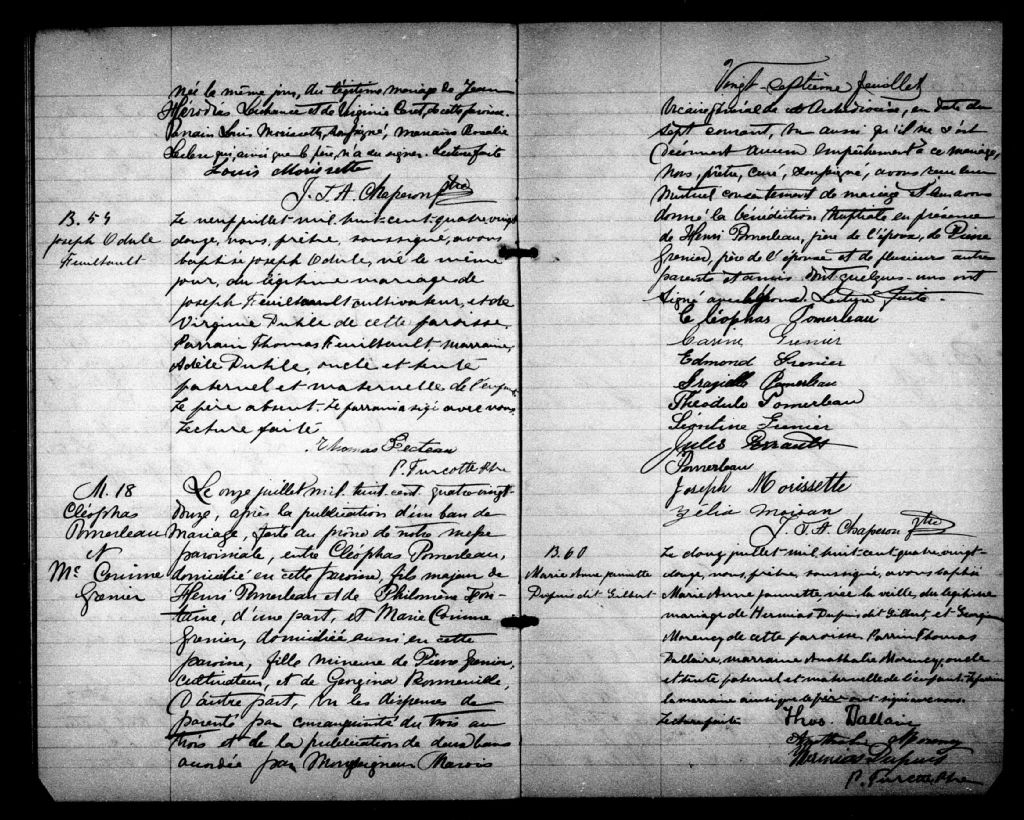 née le même jour, du légitime mariage de Jean
Hérodias Lachance et de Virginie Caret, de cette paroisse.
Parrain Louis Morissette, soussigné, marraine Rosalie
Leclerc qui, ainsi que le père, n'a su signer. Lecture faite
Louis Morissette
J. T. A. Chaperon Ptre
B. 59
Joseph Odule
Feuiltault
Le neuf juillet mil huit cent quatre vingt
douze, nous, prêtre, soussigné, avons
baptisé Joseph Odule, né le même
jour, du légitime mariage de
Joseph Feuiltault cultivateur, et de
Virginie Duhle de cette paroisse.
Parrain Thomas Feuiltault, marraine,
Adèle Duhle, oncle et tente
paternel et maternelle de l'enfant
Le père absent. Le parrain a signé avec nous
Lecture faite
Thomas Fecteau
P. Turcotte Ptre
M. 18
Cléophas
Pomerleau
&
Mie Corinne
Grenier
Le onze juillet mil huit cent quatre vingt-
douze, après la publication d'un ban de
Mariage, faite au prône de notre messe
paroissiale, entre Cléophas Pomerleau,
domicilié en cette paroisse, fils majeur de
Henri Pomerleau et de Philomène Fon-
taine, d'une part, et Marie Corinne
Grenier, domiciliée aussi en cette
paroisse, fille mineure de Pierre Grenier,
cultivateur, et de Georgina Bonneville,
D'autre part, vu les dispenses de
parenté par consanguinité du trois au
trois et de la publication de deux bans
accordée par Monseigneur Marois
Vingt-septième feuillet
Vicaire général de cet Archidiocèse, en date du
sept courant, vu aussi qu'il ne s'est
découvert aucun empêchement à ce mariage,
Nous, prêtre, curé, soussigné, avons reçu leur
mutuel consentement de mariage et leur avons
donné la bénédiction Nuptiale en présence
de Henri Pomerleau, père de l'époux, de Pierre
Grenier, père de l'épouse et de plusieurs autres
parents et amis dont quelques-uns ont
signé avec l'époux. Lecture faite.
Cléophas Pomerleau
Corine Grenier
Edmond Grenier
Grazielle Pomerleau
Théodule Pomerleau
Léontine Grenier
Jules Perrault
Pomerleau
Joseph Morissette
Zélia Moisan
J. T. A. Chaperon Ptre
B. 60
Marie Anne Jeannette
Dupuis dit Gilbert
Le douze juillet mil huit cent quatre vingt-
douze, nous, prêtre, soussigné, avons baptisé
Marie Anne Jeannette, née la veille, du légitime
mariage de Hermias Dupuis dit Gilbert, et Georgina
Morency de cette paroisse. Parrain Thomas
Dallaire, marraine Anathalie Morency, oncle
et tente paternel et maternelle de l'enfant. Le parrain
la marraine ainsi que le père ont signé avec nous.
Lecture faite
Thos. Dallaire
Anathalie Morency
Hermias Dupuis
P. Turcotte Ptre